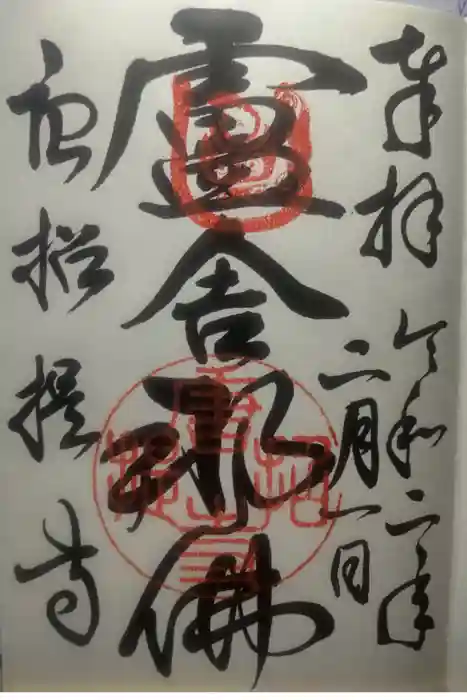 奉拝
令和二年
二月一日
盧舎那佛
唐招提寺
唐招提寺